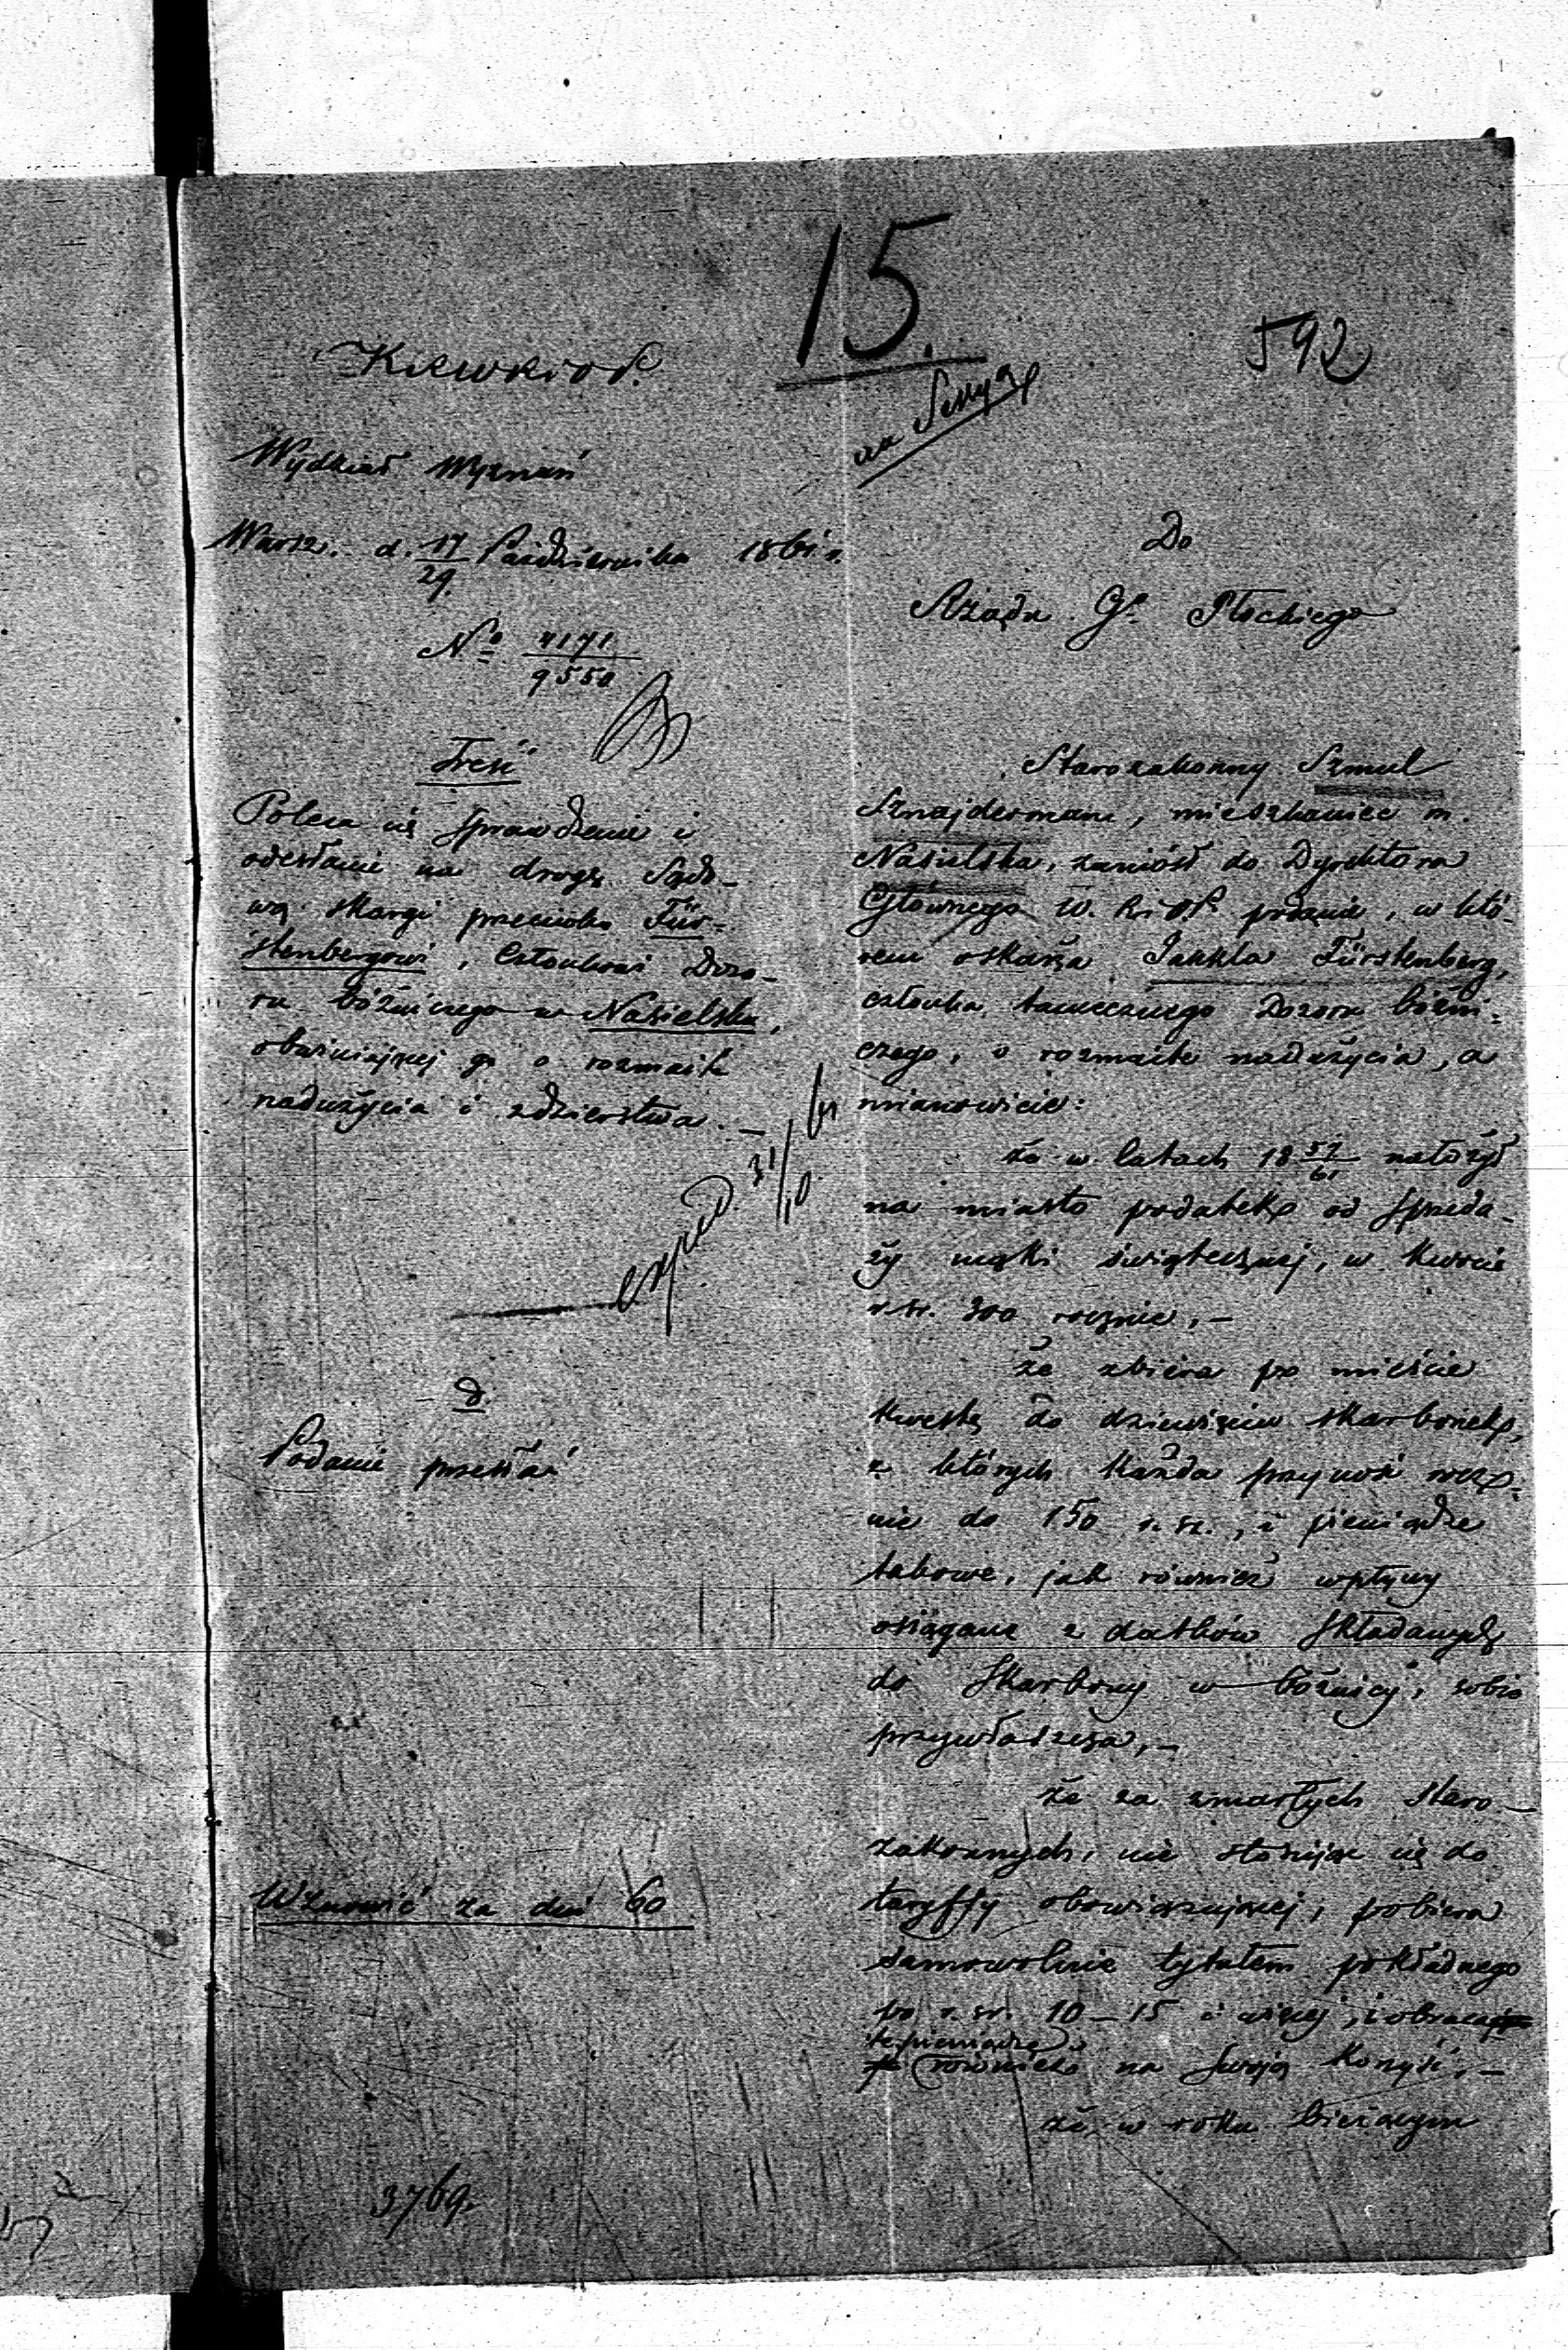 15.
592
na Sessyą
Wydział Wyznań
Warsz. d. 17/29 Października 1861 r.
No 4171/9550
Treść
Poleca się sprawdzenie i
odesłanie na drogę Sądo-
wą skargi przeciwko Für-
stenbergowi, Członkowi Dozo-
ru bóżniczego w Nasielsku,
obwiniającej go o rozmaite
nadużycia i zdzierstwa. —
exped. 31/10 61
d
Podanie przesłać
Wznowić za dni 60
3769.
Do
Rządu Go Płockiego
Starozakonny Szmul
Sznajderman, mieszkaniec m.
Nasielska, zaniósł do Dyrektora
Głównego podanie, w któ-
rem oskarża Jankla Fürstenberg,
członka tamecznego Dozoru bóżni-
czego, o rozmaite nadużycia, a
mianowicie:
że w latach 18 57/61 nałożył
na miasto podatek od sprzeda-
ży mąki świątecznej, w kwocie
r. sr. 300 rocznie, —
że zbiera po mieście
kwestę do dziewięciu skarbonek,
z których każda przynosi rocz-
nie do 150 r. sr., i pieniądze
takowe, jak również wpływy
osiągane z datków składanych
do skarbony w bóżnicy, sobie
przywłaszcza, —
że za zmarłych staro-
zakonnych, nie stosując się do
taryffy obowiązującej, pobiera
samowolnie tytułem pokładnego
po r. sr. 10 — 15 i więcej, i obraca
te pieniądze
również na swoją korzyść, —
że w roku bieżącym